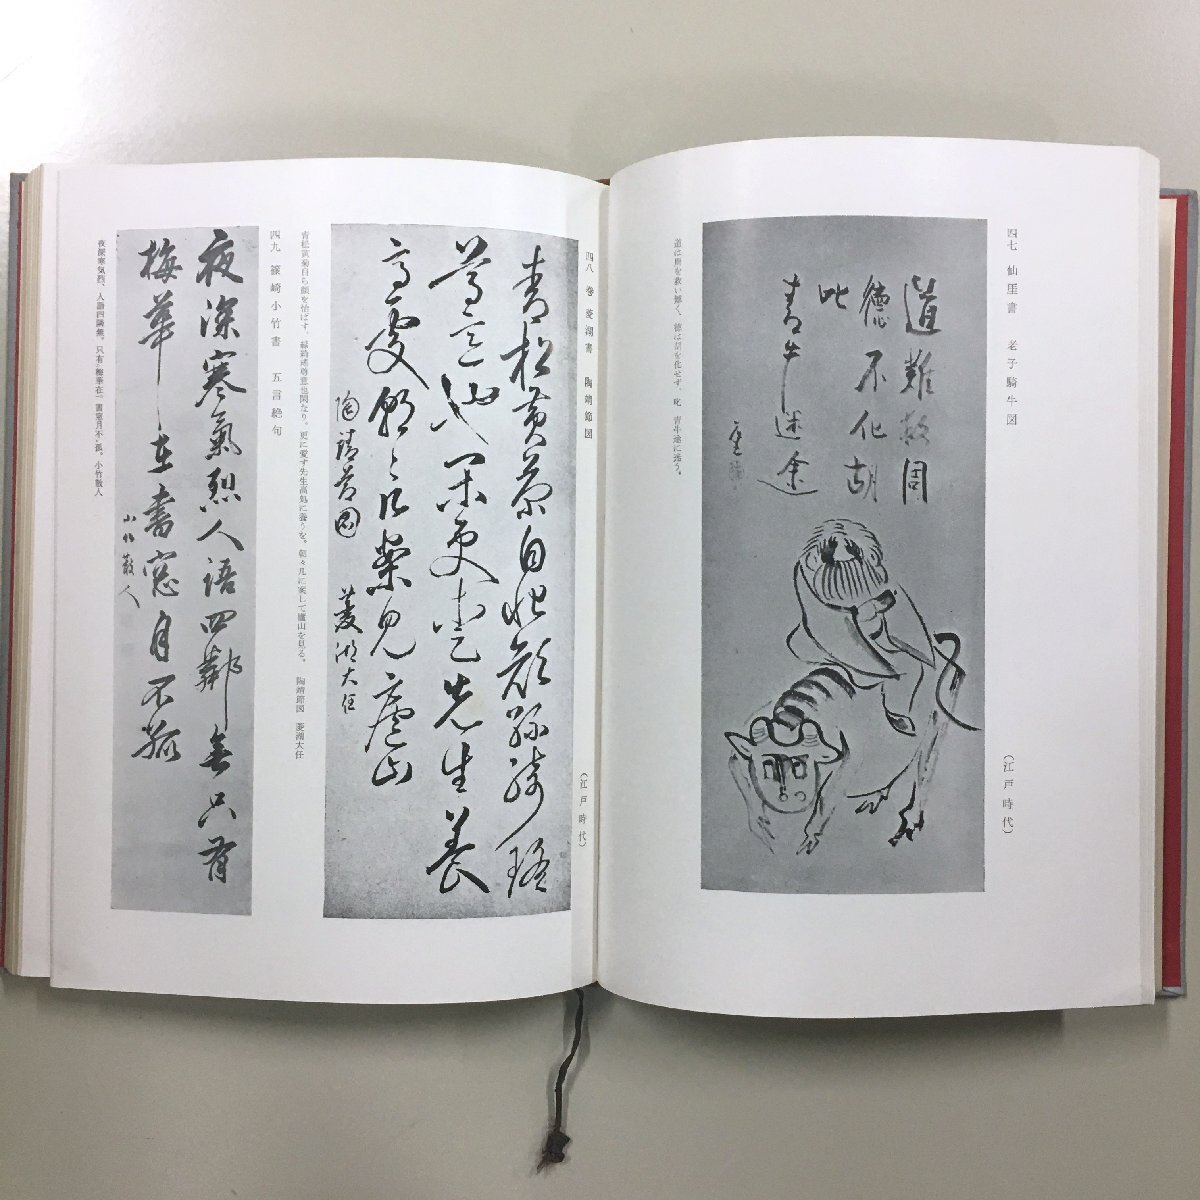 四七 仙厓書 老子騎牛図
(江戸時代)
道難救周
徳不化胡
叱
青牛迷途
道は周を救い難く、徳は胡を化せず、叱 青牛途に迷う。
四八 巻菱湖書 陶靖節図
(江戸時代)
青松黄菊自怡顔緑綺
尊意也閑更愛先生養
高処朝々几案見廬山
陶靖節図 菱湖大任
青松黄菊自ら顔を怡ばす。緑綺 尊意也閑なり。更に愛す先生高処に養うを。朝々几に案して廬山を見る。 陶靖節図 菱湖大任
四九 篠崎小竹書 五言絶句
夜深寒氣烈人語四鄰無只有
梅華在書窓月不孤
小竹散人
夜深寒気烈、人語四隣無。只有梅華在、書窓月不孤。小竹散人